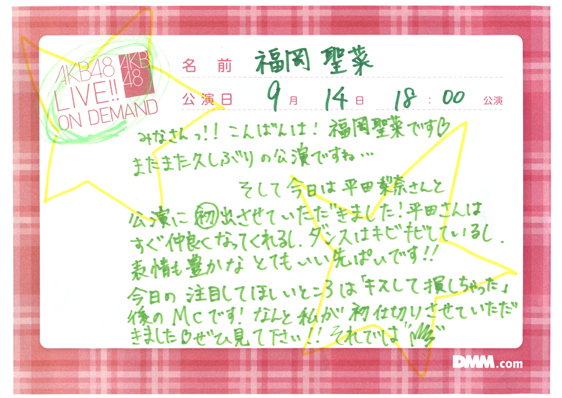 AKB48
LIVE!!
ON DEMAND
AKB
48
名前 福岡 聖菜
公演日 9月 14日 18:00 公演
みなさんっ!! こんばんは! 福岡聖菜です
またまた久しぶりの公演ですね…
そして今日は平田梨奈さんと
公演に初出させていただきました! 平田さんは
すぐ仲良くなってくれるし、ダンスはキビキビしているし、
表情も豊かなとてもいい先ぱいです!!
今日の注目してほしいところは「キスして損しちゃった」
後のMCです! なんと私が初仕切りさせていただ
きました ぜひ見て下さい!! それでは
DMM.com